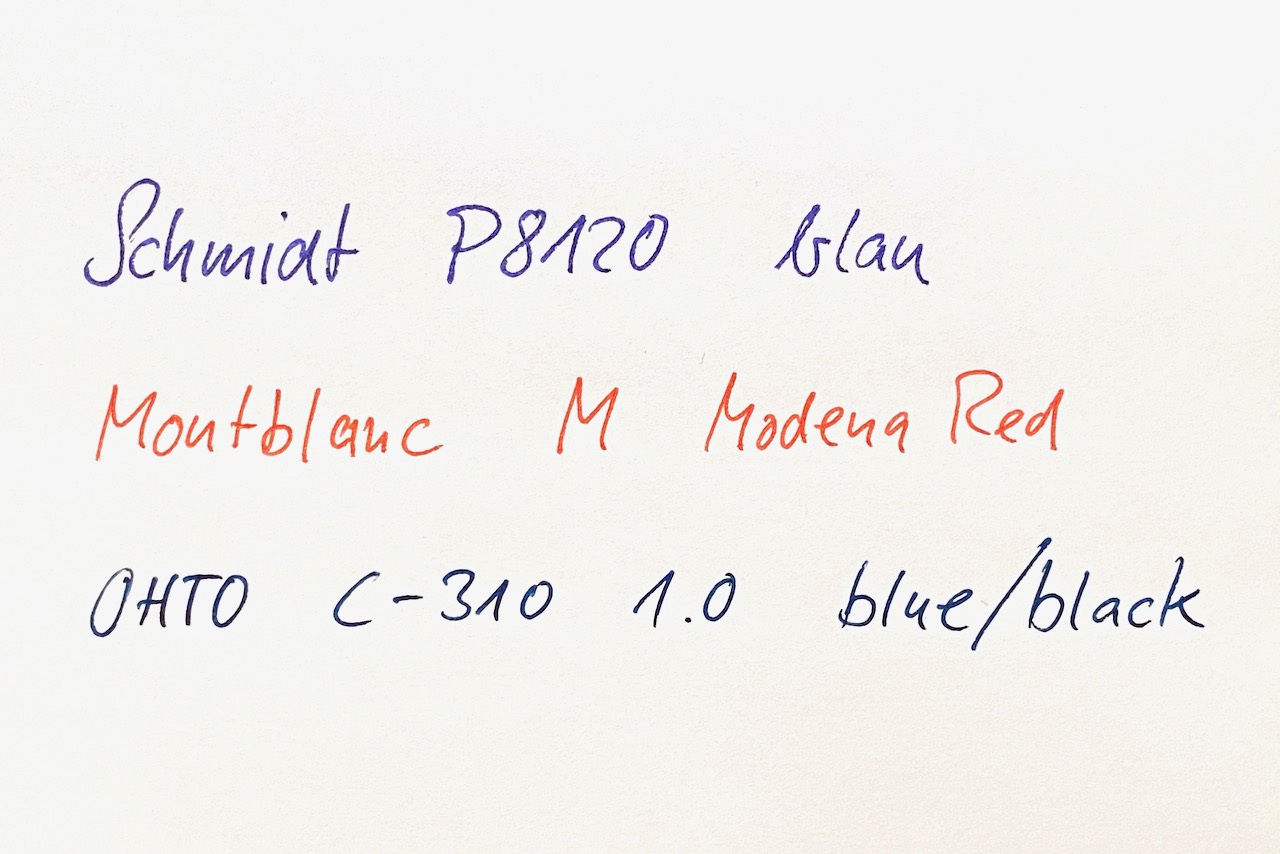 Schmidt P8120 blau
Montblanc M Modena Red
OHTO C-310 1.0 blue/black